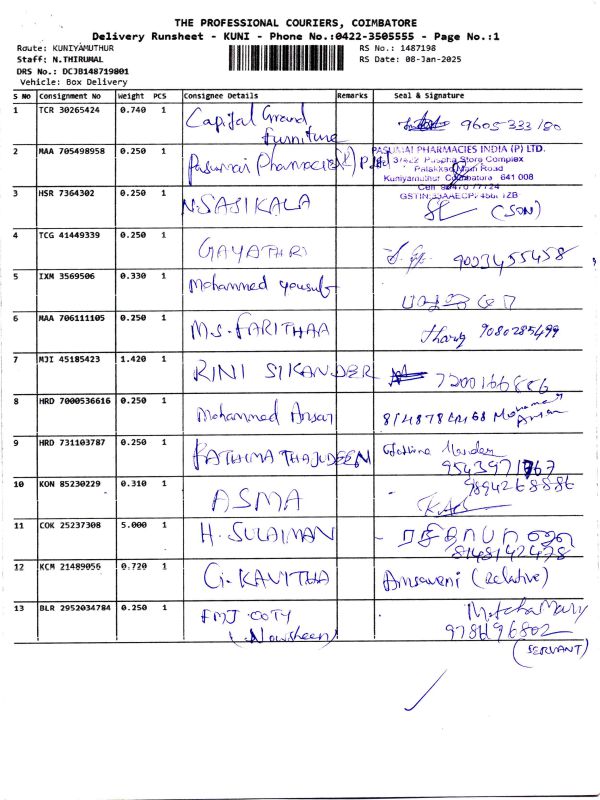 THE PROFESSIONAL COURIERS, COIMBATORE
Delivery Runsheet - KUNI - Phone No.:0422-3505555 - Page No.:1
Route: KUNIYAMUTHUR
RS No.: 1487198
Staff: N.THIRUMAL
RS Date: 08-Jan-2025
DRS No.: DCJB148719801
Vehicle: Box Delivery
S No Consignment No Weight PCS Consignee Details Remarks Seal & Signature
1 TCR 30265424 0.740 1 Capital Grand 9605333180
Furniture
2 MAA 705498958 0.250 1 Pasumai Pharmacies (I) P Ltd
PASUMAI PHARMACIES INDIA (P) LTD.
Puspha Store Complex
Palakkad Main Road
Kuniyamuthur Coimbatore 641 008
3 HSR 7364302 0.250 1 N.SASIKALA (SON)
4 TCG 41449339 0.250 1 GAYATHRI 9003455458
5 IXM 3569506 0.330 1 Mohammed yousuf
6 MAA 706111105 0.250 1 M.S. FARITHAA 9080285499
7 MJI 45185423 1.420 1 RINI SIKANDER 7200166886
8 HRD 7000536616 0.250 1 Mohammed Ansar Mohamed
9 HRD 731103787 0.250 1 FATHIMA THAJUDEEN
10 KON 85230229 0.310 1 ASMA
11 COK 25237308 5.000 1 H. SULAIMAN
8148142478
12 KCM 21489056 0.720 1 G. KAVITHA Amsaveni (relative)
13 BLR 2952034784 0.250 1 FMJ COTY
(Nowsheen)
(SERVANT)